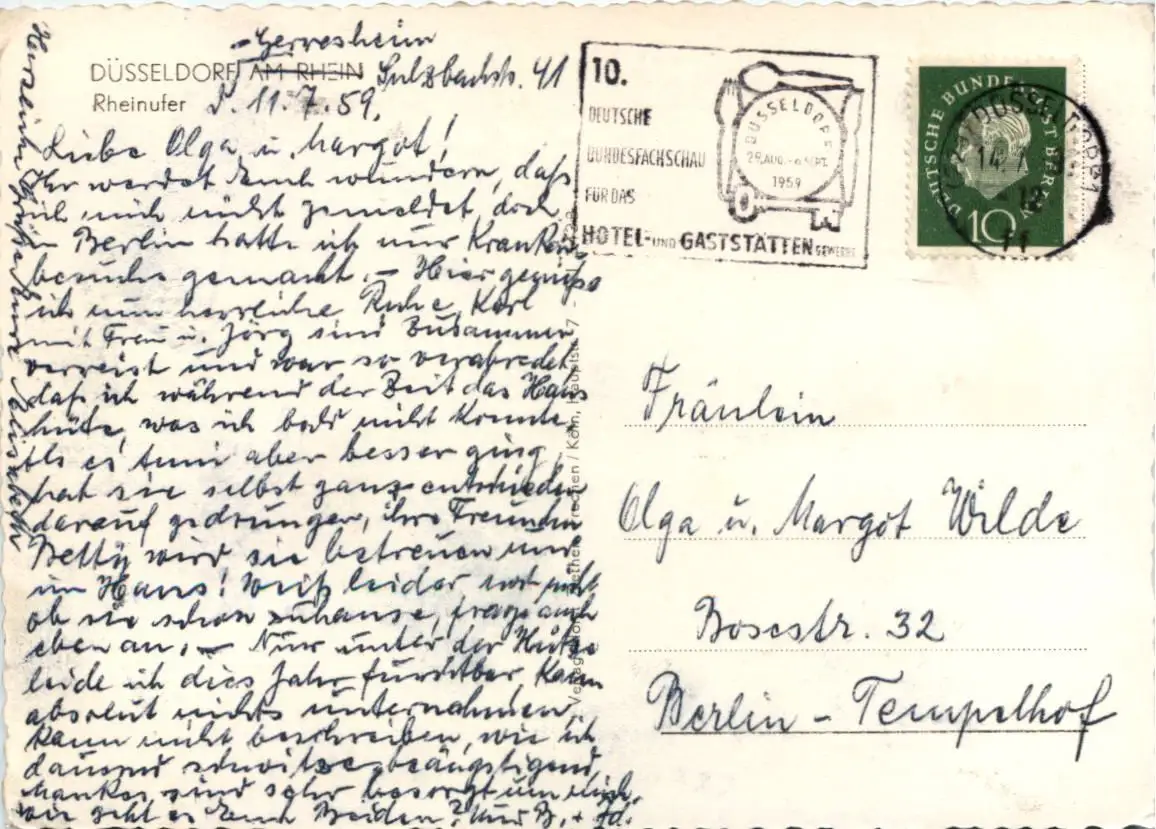 - Gerresheim
DÜSSELDORF AM RHEIN Sulzbachstr. 41
Rheinufer D. 11.7.59.
Liebe Olga u. Margot!
Ihr werdet Euch wundern, daß
ich mich nicht gemeldet, doch
in Berlin hatte ich nur Kranken-
besuche gemacht. - Hier genieße
ich nun herrliche Ruhe, Karl
mit Frau u. Jörg sind zusammen
verreist und war so verabredet
daß ich während der Zeit das Haus
hüte, was ich bald nicht konnte
Als es aber besser ging,
hat sie selbst ganz entschieden
darauf gedrungen, ihre Freundin
Betty wird sie betreuen und
im Haus! Weiß leider nicht
ob sie schon zuhause, frage auch
eben an. - Nur unter der Hitze
leide ich dies Jahr furchtbar kann
absolut nichts unternehmen,
kann nicht beschreiben, wie ich
dauernd schwitze, beängstigend,
sind sehr besorgt um mich.
wie geht es Euch Beiden?
Herzliche Grüße Eure
10.
DEUTSCHE
BUNDESFACHSCHAU
FÜR DAS
HOTEL- UND GASTSTÄTTEN GEWERBE
DÜSSELDORF
29. AUG. - 6. SEPT.
1959
DEUTSCHE BUNDESPOST BERLIN
10
DÜSSELDORF
14.7.
Köln, Hauptstr. 7
Fräulein
Olga u. Margot Wilde
Bosestr. 32
Berlin - Tempelhof